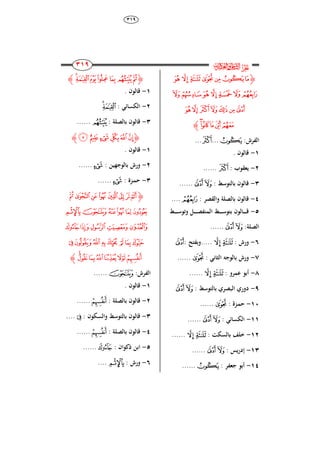 ٣١٩
٣١٩
﴿ مَا يَكُونُ مِن نَّجْوَىٰ ثَلَاثَةٍ إِلَّا هُوَ
رَابِعُهُمْ وَلَا خَمْسَةٍ إِلَّا هُوَ سَادِسُهُمْ وَلَا
أَدْنَىٰ مِن ذَٰلِكَ وَلَا أَكْثَرَ إِلَّا هُوَ
مَعَهُمْ أَيْنَ مَا كَانُوا ﴾
الفرش: يَكُونُ ، أَكْثَرَ ....
١- قالون .
٢- يعقوب : أَكْثَرَ ......
٣- قالون بالتوسط : وَلَا أَدْنَىٰ ......
٤- قالون بالصلة والقصر : رَابِعُهُمْ ....
٥- قالون بتوسط المنفصل وتوسط
الصلة: وَلَا أَدْنَىٰ ......
٦- ورش : ثَلَاثَةٍ إِلَّا ..... وبفتح : أَدْنَىٰ
٧- ورش بالوجه الثاني : نَّجْوَىٰ ......
٨- أبو عمرو : ثَلَاثَةٍ إِلَّا ......
٩- دوري البصري بالتوسط : وَلَا أَدْنَىٰ
١٠- حمزة : نَّجْوَىٰ ......
١١- الكسائي : وَلَا أَدْنَىٰ ......
١٢- خلف بالسكت : ثَلَاثَةٍ إِلَّا ......
١٣- إدريس : وَلَا أَدْنَىٰ ......
١٤- أبو جعفر : يَكُونُ ......
﴿ ثُمَّ يُنَبِّئُهُم بِمَا عَمِلُوا يَوْمَ الْقِيَامَةِ ﴾
١- قالون .
٢- الكسائي : الْقِيَامَةِ
٣- قالون بالصلة : يُنَبِّئُهُم ......
﴿ إِنَّ اللَّهَ بِكُلِّ شَيْءٍ عَلِيمٌ ﴾
١- قالون .
٢- ورش بالوجهين : شَيْءٍ ......
٣- حمزة : شَيْءٍ ......
﴿ أَلَمْ تَرَ إِلَى الَّذِينَ نُهُوا عَنِ النَّجْوَىٰ ثُمَّ
يَعُودُونَ لِمَا نُهُوا عَنْهُ وَيَتَنَاجَوْنَ بِالْإِثْمِ
وَالْعُدْوَانِ وَمَعْصِيَتِ الرَّسُولِ وَإِذَا جَاءُوكَ
حَيَّوْكَ بِمَا لَمْ يُحَيِّكَ بِهِ اللَّهُ وَيَقُولُونَ فِي
أَنفُسِهِمْ لَوْلَا يُعَذِّبُنَا اللَّهُ بِمَا نَقُولُ ﴾
الفرش: وَيَتَنَاجَوْنَ ......
١- قالون .
٢- قالون بالصلة : أَنفُسِهِمْ ......
٣- قالون بالتوسط والسكون : فِي ....
٤- قالون بالصلة : أَنفُسِهِمْ ......
٥- ابن ذكوان : جَاءُوكَ ......
٦- ورش : بِالْإِثْمِ ....